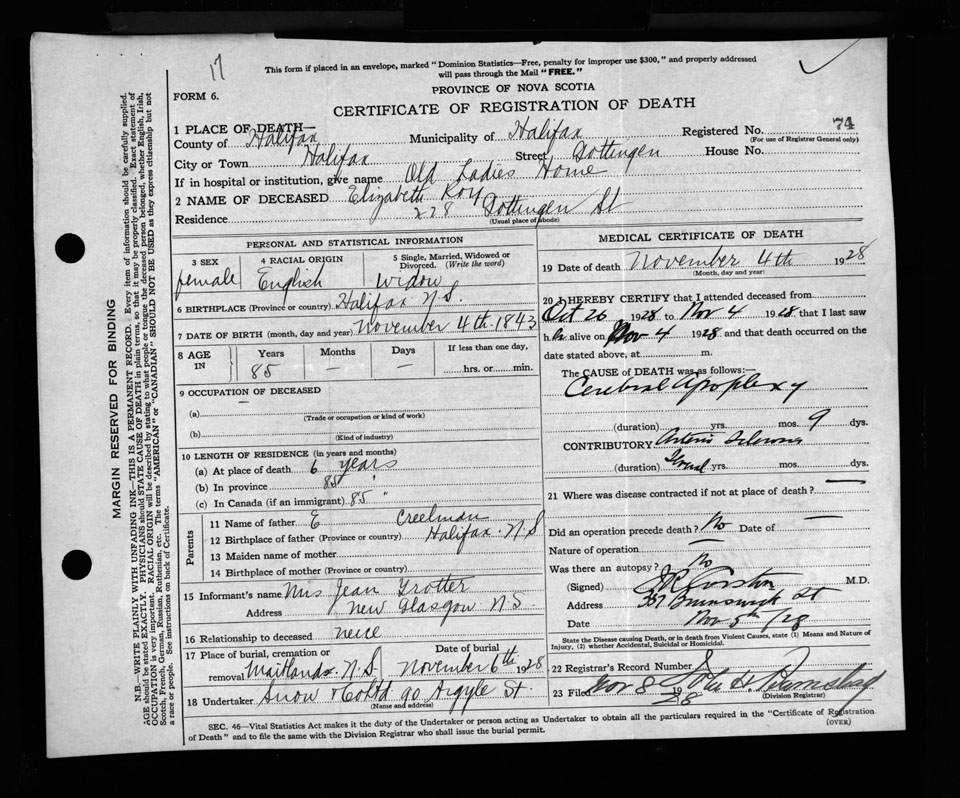 17
This form if placed in an envelope, marked "Dominion Statistics—Free, penalty for improper use $300," and properly addressed
will pass through the Mail "FREE."
PROVINCE OF NOVA SCOTIA
FORM 6.
CERTIFICATE OF REGISTRATION OF DEATH
1 PLACE OF DEATH—
County of Halifax Municipality of Halifax Registered No. 74
(For use of Registrar General only)
City or Town Halifax Street Gottingen House No.
If in hospital or institution, give name Old Ladies Home
2 NAME OF DECEASED Elizabeth Roy
Residence 278 Gottingen St
(Usual place of abode)
MARGIN RESERVED FOR BINDING
N.B.—WRITE PLAINLY WITH UNFADING INK—THIS IS A PERMANENT RECORD. Every item of information should be carefully supplied.
AGE should be stated EXACTLY. PHYSICIANS should STATE CAUSE OF DEATH in plain terms, so that it may be properly classified. Exact statement of
OCCUPATION is very important. RACIAL ORIGIN will be described by stating to what people or tongue the deceased person belonged, whether English, Irish,
Scotch, French, German, Russian, Ruthenian, etc. The terms "AMERICAN" or "CANADIAN" SHOULD NOT BE USED as they express citizenship but not
a race or people. See instructions on back of Certificate.
PERSONAL AND STATISTICAL INFORMATION
3 SEX 4 RACIAL ORIGIN 5 Single, Married, Widowed or
Divorced. (Write the word)
female English Widow
6 BIRTHPLACE (Province or country) Halifax N.S.
7 DATE OF BIRTH (month, day and year) November 4th 1843
8 AGE IN Years Months Days If less than one day,
85 — — hrs. or min.
9 OCCUPATION OF DECEASED
(a)
(Trade or occupation or kind of work)
(b)
(Kind of industry)
10 LENGTH OF RESIDENCE (in years and months)
(a) At place of death 6 years
(b) In province 85 "
(c) In Canada (if an immigrant) 85 "
Parents
11 Name of father E Creelman
12 Birthplace of father (Province or country) Halifax N.S
13 Maiden name of mother
14 Birthplace of mother (Province or country)
15 Informant's name Mrs Jean Trotter
Address New Glasgow N.S.
16 Relationship to deceased neice
17 Place of burial, cremation or removal Date of burial
Maitland N.S November 6th 1928
18 Undertaker Snow & Co Ltd 90 Argyle St.
(Name and address)
MEDICAL CERTIFICATE OF DEATH
19 Date of death November 4th 1928
(Month, day and year)
20 I HEREBY CERTIFY that I attended deceased from
Oct 26 1928 to Nov 4 1928 that I last saw
her alive on Nov 4 1928 and that death occurred on the
date stated above, at m.
The CAUSE OF DEATH was as follows:—
Cerebral Apoplexy
(duration) yrs. mos. 9 dys.
CONTRIBUTORY Arterio Sclerosis
(duration) yrs. mos. dys.
21 Where was disease contracted if not at place of death? —
Did an operation precede death? No Date of —
Nature of operation —
Was there an autopsy? No
(Signed) M.D.
Address 357 Brunswick St
Date Nov 5/28
State the Disease causing Death, or in death from Violent Causes, state (1) Means and Nature of
Injury, (2) whether Accidental, Suicidal or Homicidal.
22 Registrar's Record Number
23 Filed Nov 8 1928
(Division Registrar)
SEC. 46—Vital Statistics Act makes it the duty of the Undertaker or person acting as Undertaker to obtain all the particulars required in the "Certificate of Registration
of Death" and to file the same with the Division Registrar who shall issue the burial permit.
(OVER)